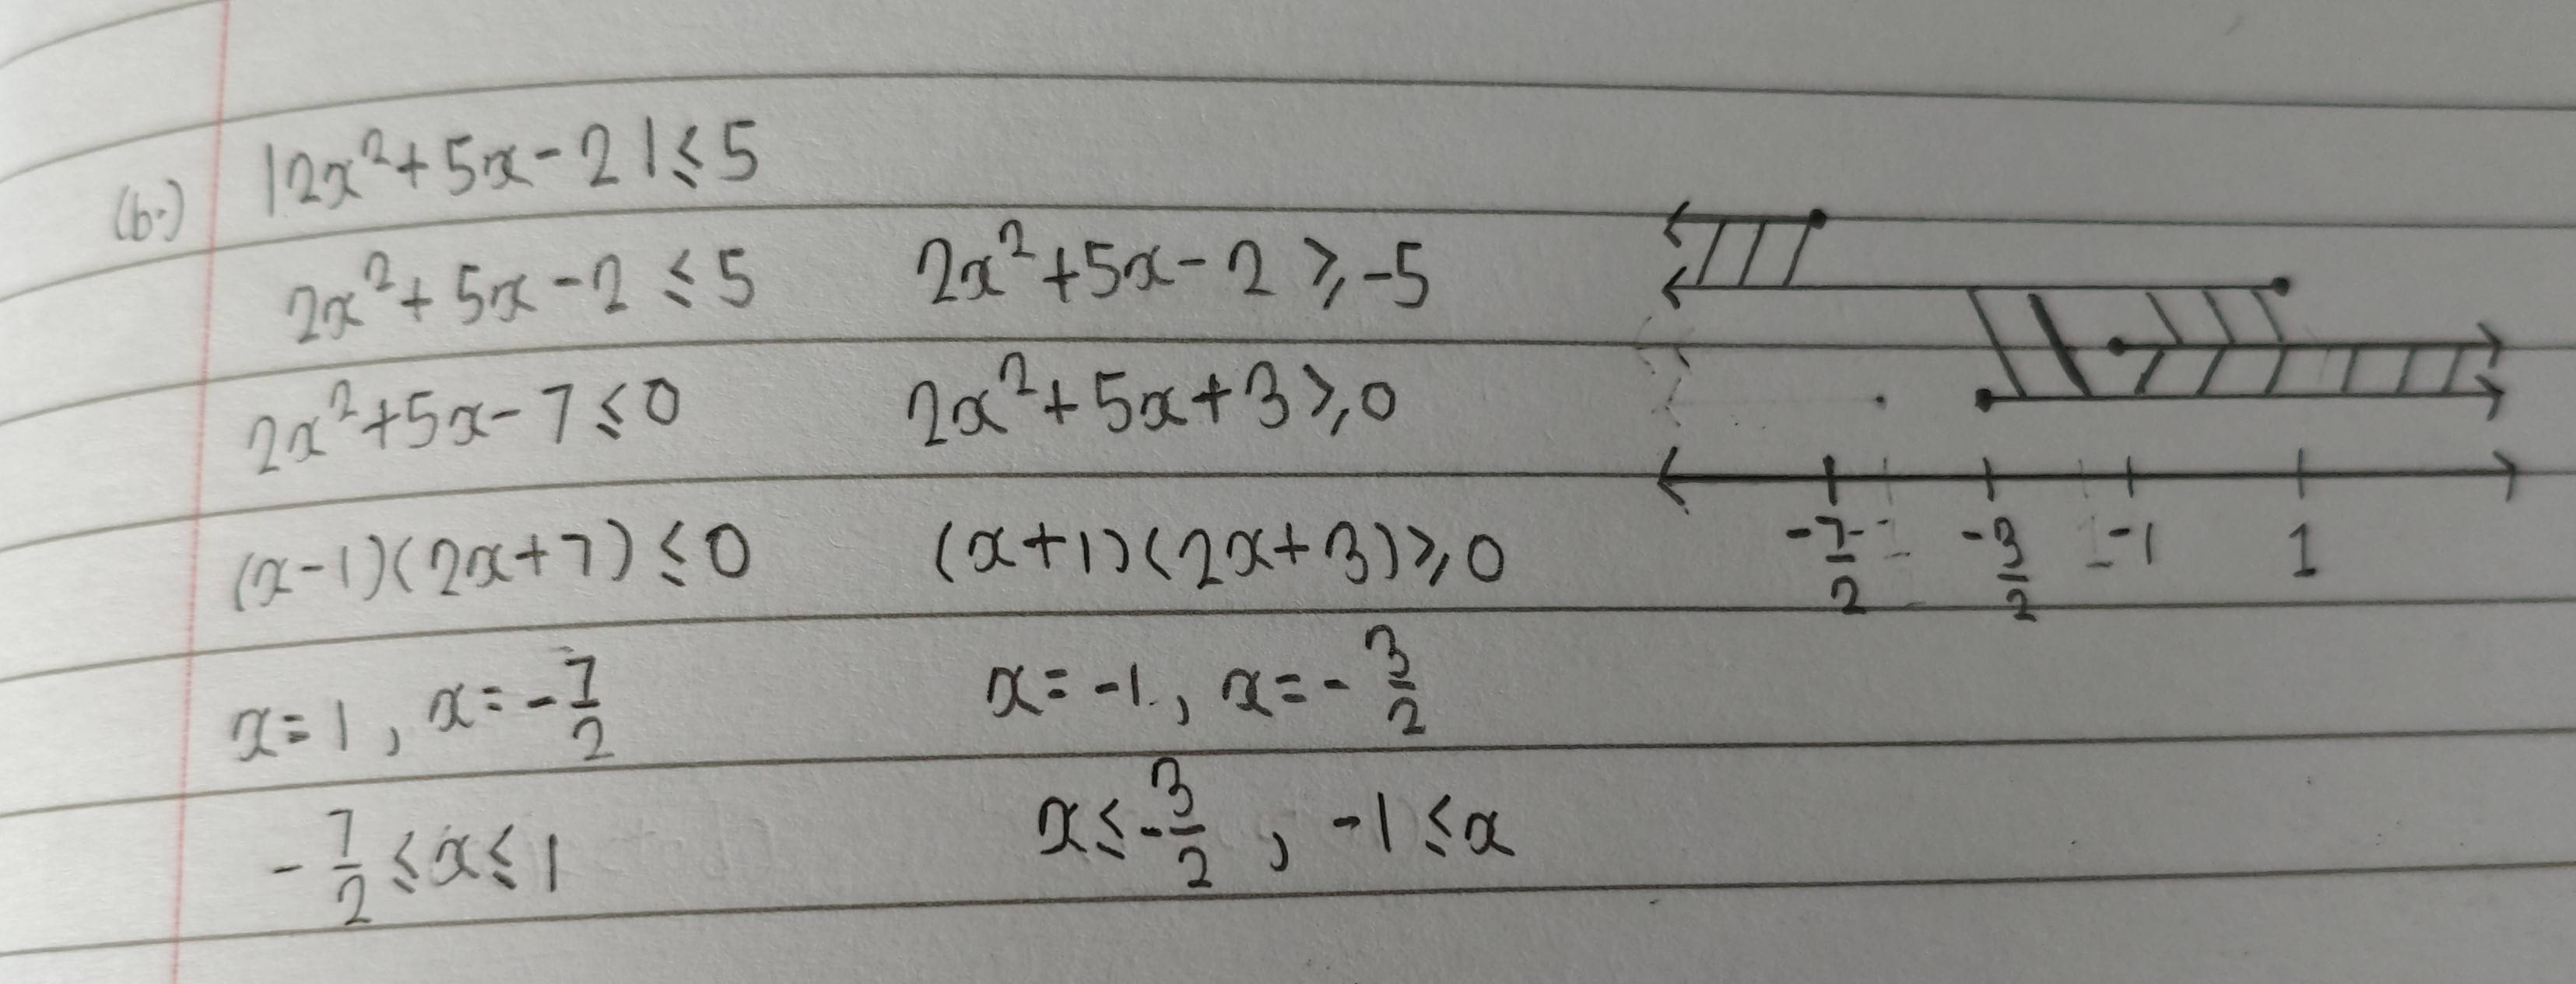 (b.) |2x²+5x-2|≤5
2x²+5x-2≤5 2x²+5x-2≥-5
2x²+5x-7≤0 2x²+5x+3≥0
(x-1)(2x+7)≤0 (x+1)(2x+3)≥0
-7/2 -3/2 -1 1
x=1, x=-7/2 x=-1, x=-3/2
-7/2≤x≤1 x≤-3/2, -1≤x